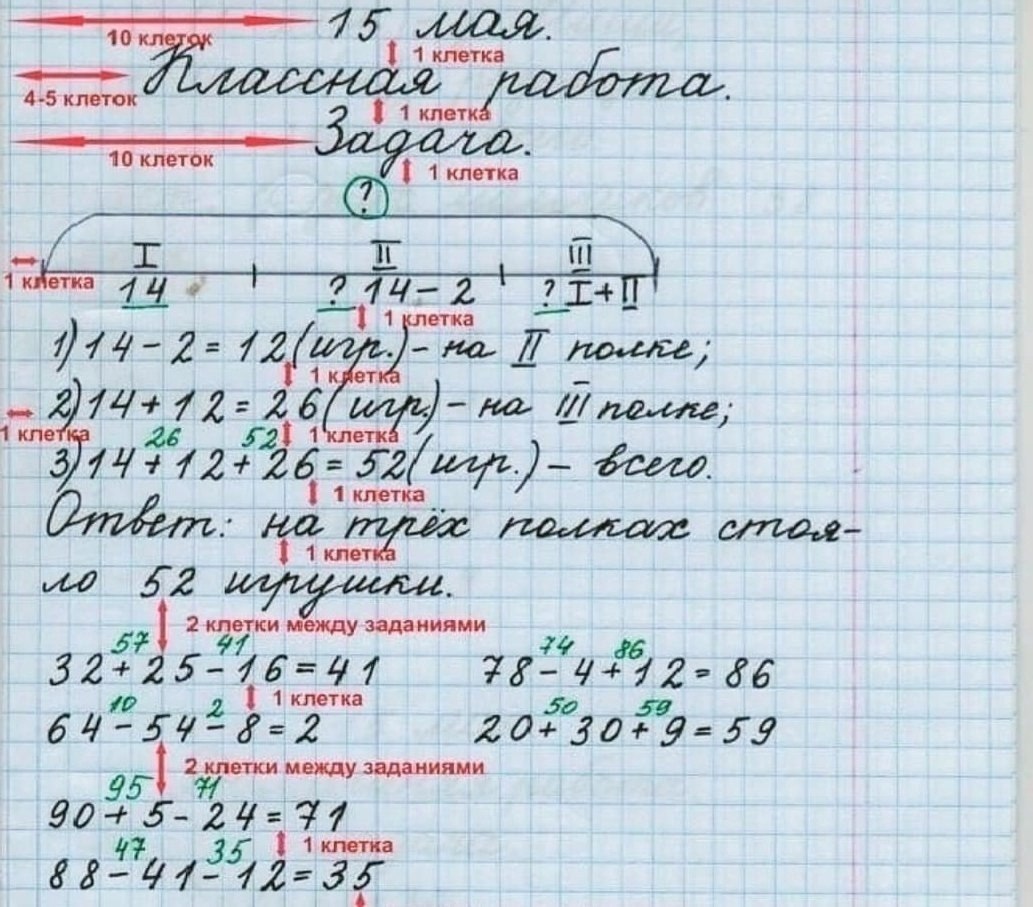 10 клеток 15 мая.
1 клетка
4-5 клеток Классная работа.
1 клетка
10 клеток Задача.
1 клетка
?
I II III
1 клетка 14 ? 14 - 2 ? I + II
1 клетка
1) 14 - 2 = 12 (игр.) - на II полке;
1 клетка
2) 14 + 12 = 26 (игр.) - на III полке;
1 клетка 1 клетка
26 52
3) 14 + 12 + 26 = 52 (игр.) - всего.
1 клетка
Ответ: на трёх полках стоя-
1 клетка
ло 52 игрушки.
2 клетки между заданиями
57 41 74 86
32 + 25 - 16 = 41 78 - 4 + 12 = 86
1 клетка
10 2 50 59
64 - 54 - 8 = 2 20 + 30 + 9 = 59
2 клетки между заданиями
95 71
90 + 5 - 24 = 71
1 клетка
47 35
88 - 41 - 12 = 35